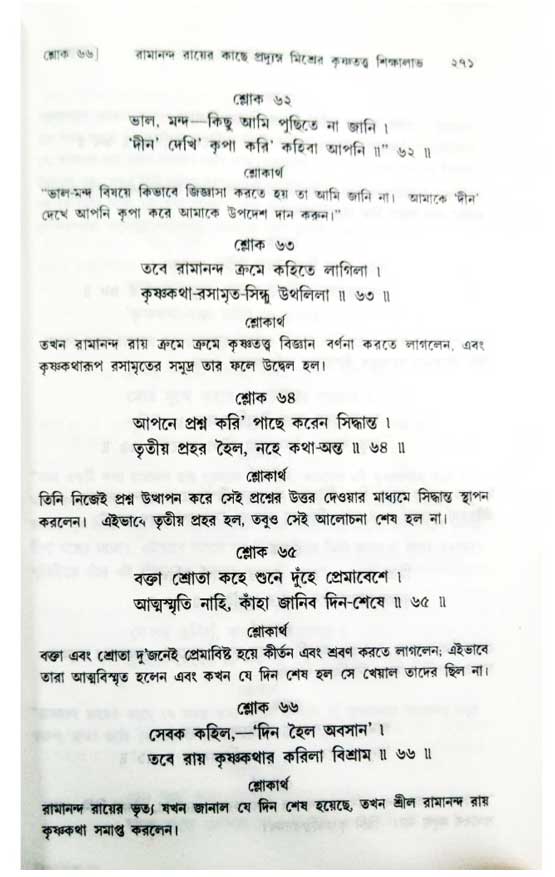 শ্লোক ৬৬] রামানন্দ রায়ের কাছে প্রদ্যুম্ন মিশ্রের কৃষ্ণতত্ত্ব শিক্ষালাভ ২৭১
শ্লোক ৬২
ভাল, মন্দ—কিছু আমি পুছিতে না জানি ।
‘দীন’ দেখি’ কৃপা করি’ কহিবা আপনি ॥” ৬২ ॥
শ্লোকার্থ
“ভাল-মন্দ বিষয়ে কিভাবে জিজ্ঞাসা করতে হয় তা আমি জানি না। আমাকে ‘দীন’
দেখে আপনি কৃপা করে আমাকে উপদেশ দান করুন।”
শ্লোক ৬৩
তবে রামানন্দ ক্রমে কহিতে লাগিলা ।
কৃষ্ণকথা-রসামৃত-সিন্ধু উথলিলা ॥ ৬৩ ॥
শ্লোকার্থ
তখন রামানন্দ রায় ক্রমে ক্রমে কৃষ্ণতত্ত্ব বিজ্ঞান বর্ণনা করতে লাগলেন, এবং
কৃষ্ণকথারূপ রসামৃতের সমুদ্র তার ফলে উদ্বেল হল।
শ্লোক ৬৪
আপনে প্রশ্ন করি’ পাছে করেন সিদ্ধান্ত ।
তৃতীয় প্রহর হৈল, নহে কথা-অন্ত ॥ ৬৪ ॥
শ্লোকার্থ
তিনি নিজেই প্রশ্ন উত্থাপন করে সেই প্রশ্নের উত্তর দেওয়ার মাধ্যমে সিদ্ধান্ত স্থাপন
করলেন। এইভাবে তৃতীয় প্রহর হল, তবুও সেই আলোচনা শেষ হল না।
শ্লোক ৬৫
বক্তা শ্রোতা কহে শুনে দুঁহে প্রেমাবেশে ।
আত্মস্মৃতি নাহি, কাঁহা জানিব দিন-শেষে ॥ ৬৫ ॥
শ্লোকার্থ
বক্তা এবং শ্রোতা দু’জনেই প্রেমাবিষ্ট হয়ে কীর্তন এবং শ্রবণ করতে লাগলেন; এইভাবে
তারা আত্মবিস্মৃত হলেন এবং কখন যে দিন শেষ হল সে খেয়াল তাদের ছিল না।
শ্লোক ৬৬
সেবক কহিল,—‘দিন হৈল অবসান’ ।
তবে রায় কৃষ্ণকথার করিলা বিশ্রাম ॥ ৬৬ ॥
শ্লোকার্থ
রামানন্দ রায়ের ভৃত্য যখন জানাল যে দিন শেষ হয়েছে, তখন শ্রীল রামানন্দ রায়
কৃষ্ণকথা সমাপ্ত করলেন।